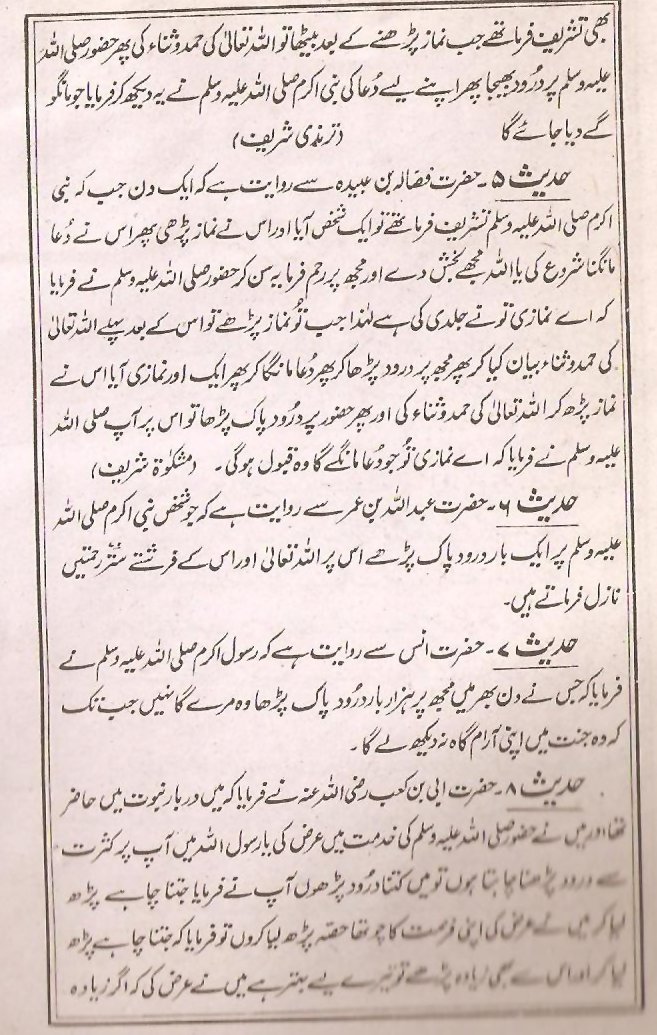 بھی تشریف فرما تھے جب نماز پڑھنے کے بعد بیٹھا تو اللہ تعالیٰ کی حمد و ثناء کی پھر حضور صلی اللہ
علیہ وسلم پر درود بھیجا پھر اپنے لیے دُعا کی نبی اکرم صلی اللہ علیہ وسلم نے یہ دیکھ کر فرمایا جو مانگو
گے دیا جائے گا (ترمذی شریف)
حدیث ۵۔ حضرت فضالہ بن عبیدہ سے روایت ہے کہ ایک دن جب کہ نبی
اکرم صلی اللہ علیہ وسلم تشریف فرما تھے تو ایک شخص آیا اور اس نے نماز پڑھی پھر اس نے دُعا
مانگنا شروع کی یا اللہ مجھے بخش دے اور مجھ پر رحم فرما یہ سن کر حضور صلی اللہ علیہ وسلم نے فرمایا
کہ اے نمازی تو نے جلدی کی ہے لہٰذا جب تُو نماز پڑھے تو اس کے بعد پہلے اللہ تعالیٰ
کی حمد و ثناء بیان کیا کر پھر مجھ پر درود پڑھا کر پھر دُعا مانگا کر پھر ایک اور نمازی آیا اس نے
نماز پڑھ کر اللہ تعالیٰ کی حمد و ثناء کی اور پھر حضور پر درُود پاک پڑھا تو اس پر آپ صلی اللہ
علیہ وسلم نے فرمایا کہ اے نمازی تُو جو دُعا مانگے گا وہ قبول ہو گی۔ (مشکوٰۃ شریف)
حدیث ۶۔ حضرت عبداللہ بن عمر سے روایت ہے کہ جو شخص نبی اکرم صلی اللہ
علیہ وسلم پر ایک بار درود پاک پڑھے اس پر اللہ تعالیٰ اور اس کے فرشتے ستّر رحمتیں
نازل فرماتے ہیں۔
حدیث ۷۔ حضرت انس سے روایت ہے کہ رسول اکرم صلی اللہ علیہ وسلم نے
فرمایا کہ جس نے دن بھر میں مجھ پر ہزار بار درُود پاک پڑھا وہ مرے گا نہیں جب تک
کہ وہ جنت میں اپنی آرام گاہ نہ دیکھ لے گا۔
حدیث ۸۔ حضرت ابی بن کعب رضی اللہ عنہ نے فرمایا کہ میں دربار نبوت میں حاضر
تھا اور میں نے حضور صلی اللہ علیہ وسلم کی خدمت میں عرض کی یا رسول اللہ میں آپ پر کثرت
سے درود پڑھنا چاہتا ہوں تو میں کتنا درُود پڑھوں آپ نے فرمایا جتنا چاہے پڑھ
لیا کر میں نے عرض کی اپنی فرصت کا چوتھا حصّہ پڑھ لیا کروں تو فرمایا کہ جتنا چاہے پڑھ
لیا کر اور اس سے بھی زیادہ پڑھے تو تیرے لیے بہتر ہے میں نے عرض کی کہ اگر زیادہ